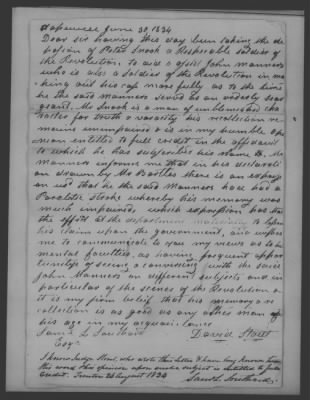 Hopewell June 30, 1834
Dear sir having this day been taking the de
position of Peter Snook a Respectable soldier of
the Revolution, to aid & assist John Manners
who is also a Soldier of the Revolution in ma
king out his case more fully as to the time
he the said Manners served as an orderly ser
geant. Mr Snook is a man of unblemished cha
racter for truth & veracity his recollection re
mains unimpaired & is in my humble opi
nion entitled to full credit in the affidavit
to which he has subscribed his name. Mr
Manners informs me that in his declarati
on drawn by Mr Bartles there is an express
ion used that he the said Manners have had a
Paralytic Stroke whereby his memory was
much impaired, which expression has had
the effect at the department to
his claim upon the government, and wishes
me to communicate to you my views as to his
mental faculties, as having frequent oppor
tunities of seeing & conversing with the said
John Manners on different subjects and in
particular of the scenes of the Revolution &
it is my firm belief that his memory & re
collection is as good as any other man of
his age in my acquaintance
Saml L Southard David Stout
Esqr
I know Judge Stout, who wrote this letter & have long known him
this was his opinion upon said subject is entitled to full
Credit. Trenton 26 August 1834
Saml L. Southard.